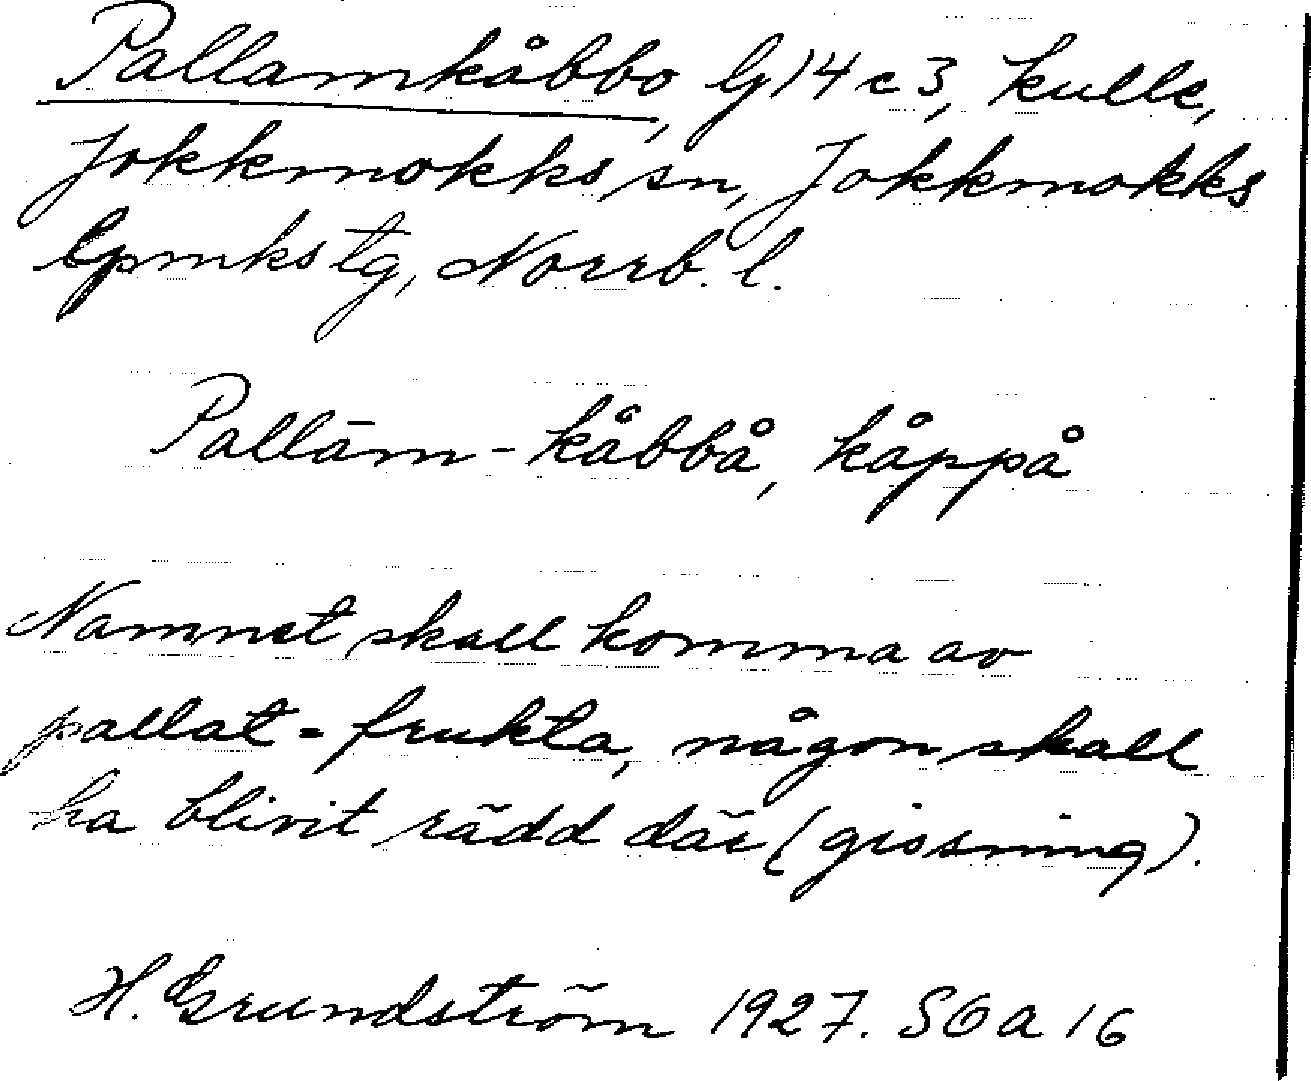 Pallamkåbbo, G14c3, kulle,
Jokkmokks sn, Jokkmokks
lpmks tg, Norrb. l.
Pallām-kåbbå, kåppå
Namnet skall komma av
pallat = frukta, någon skall
ha blivit rädd där (gissning).
H. Grundström 1927. SOA 16